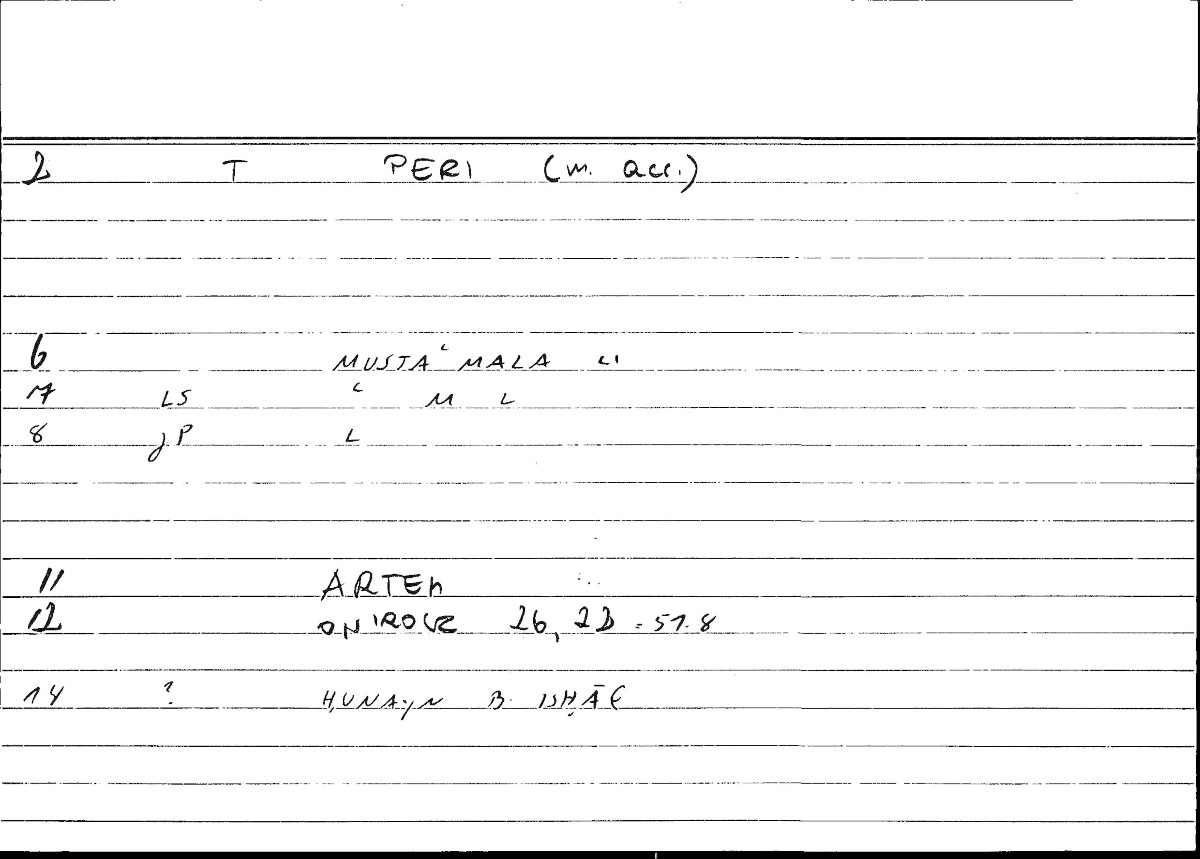 2 T PERI (m. acc.)
6 MUSTAʿMALA LI
7 LS ʿ M L
8 JP L
11 ARTEM
12 ONIROCR 26, 22 = 51.8
14 ? ḤUNAYN B. ISḤĀQ